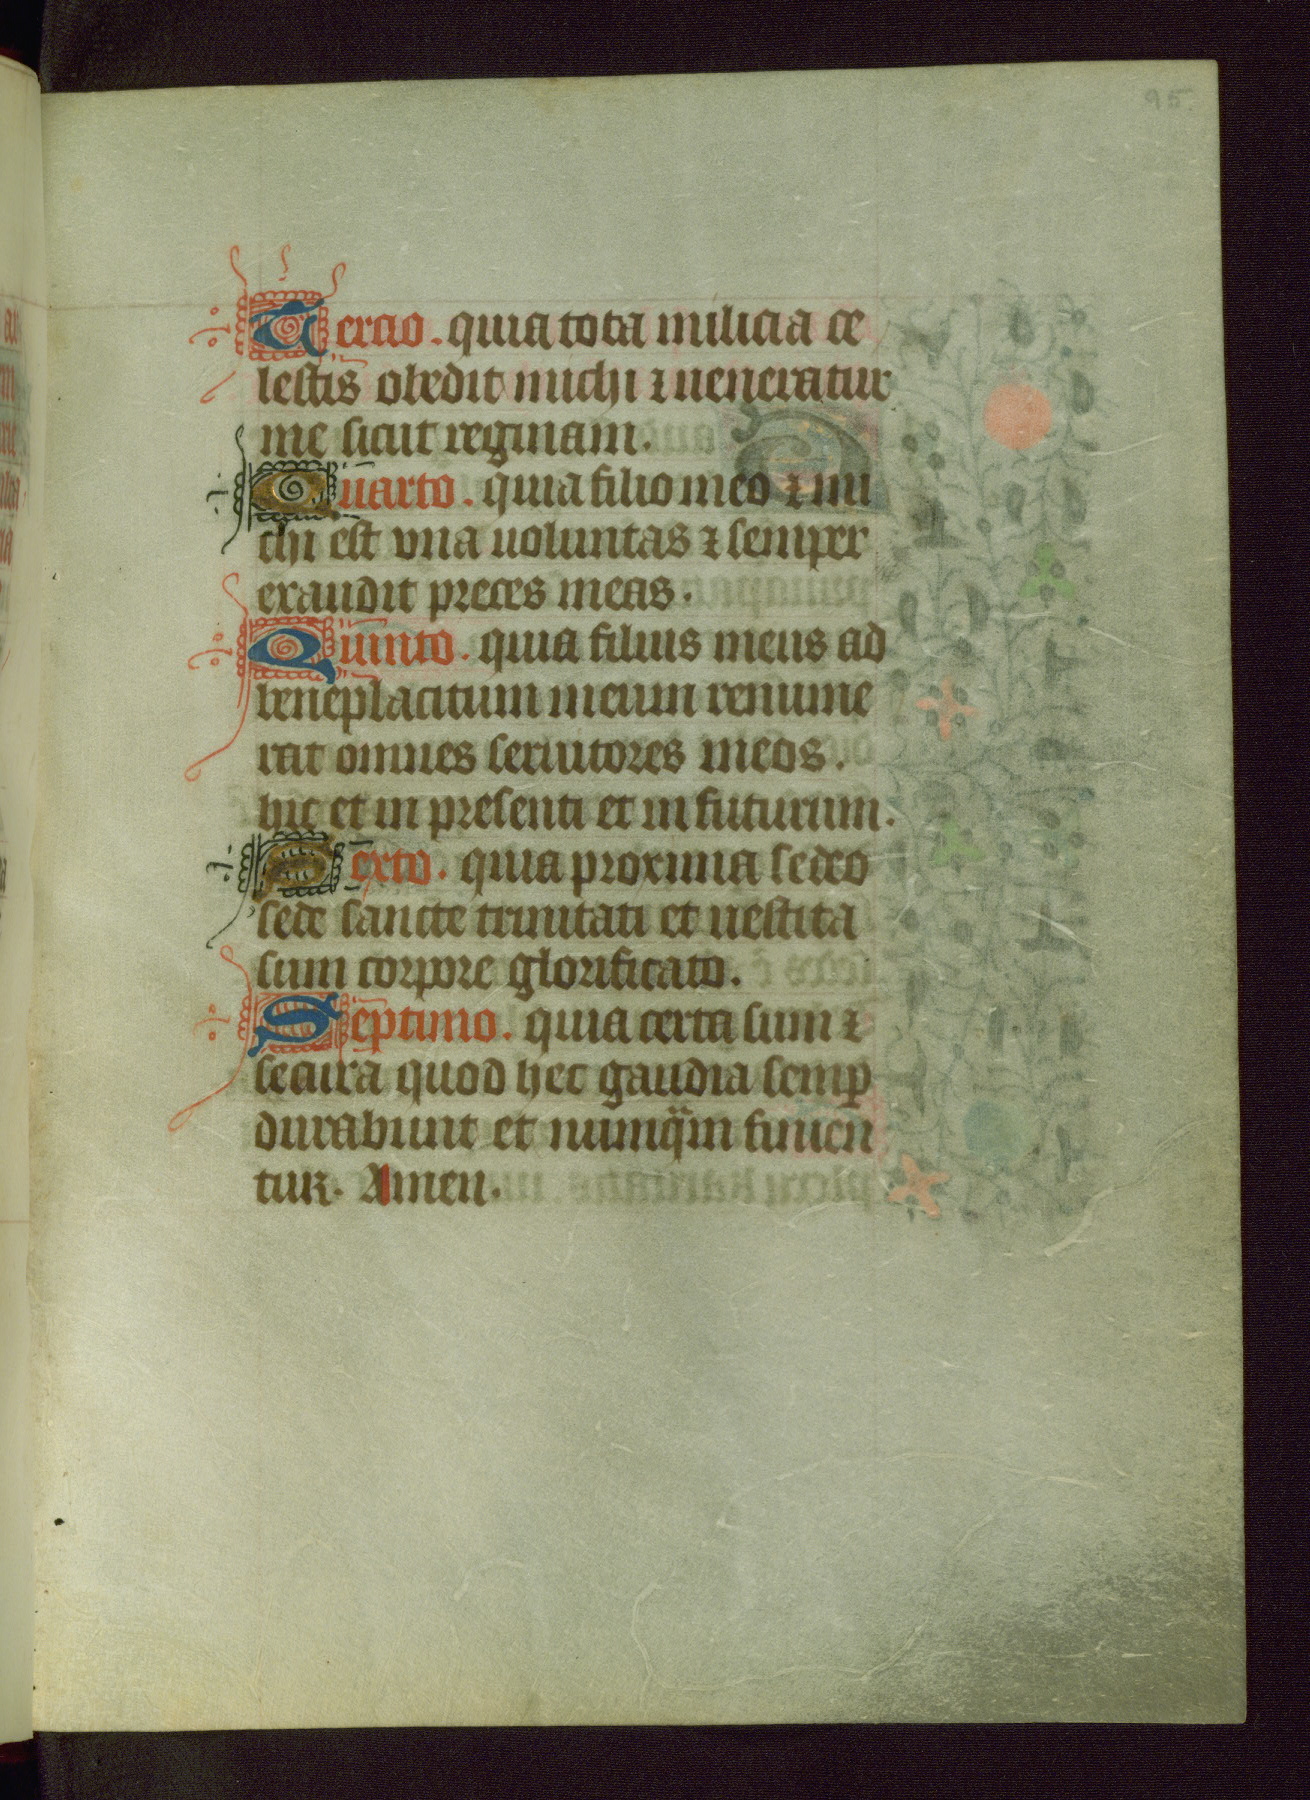 95.
Tercio. quia tota milicia ce
lestis obedit michi ⁊ ueneratur
me sicut reginam.
Quarto. quia filio meo ⁊ mi
chi est vna uoluntas ⁊ semper
exaudit preces meas.
Quinto. quia filius meus ad
beneplacitum meum renume
rat omnes seruitores meos.
hic et in presenti et in futurum.
Sexto. quia proxima sedeo
sede sancte trinitati et uestita
sum corpore glorificato.
Septimo. quia certa sum ⁊
secura quod hec gaudia semꝑ
durabunt et numqᷓm finien
tur. Amen.